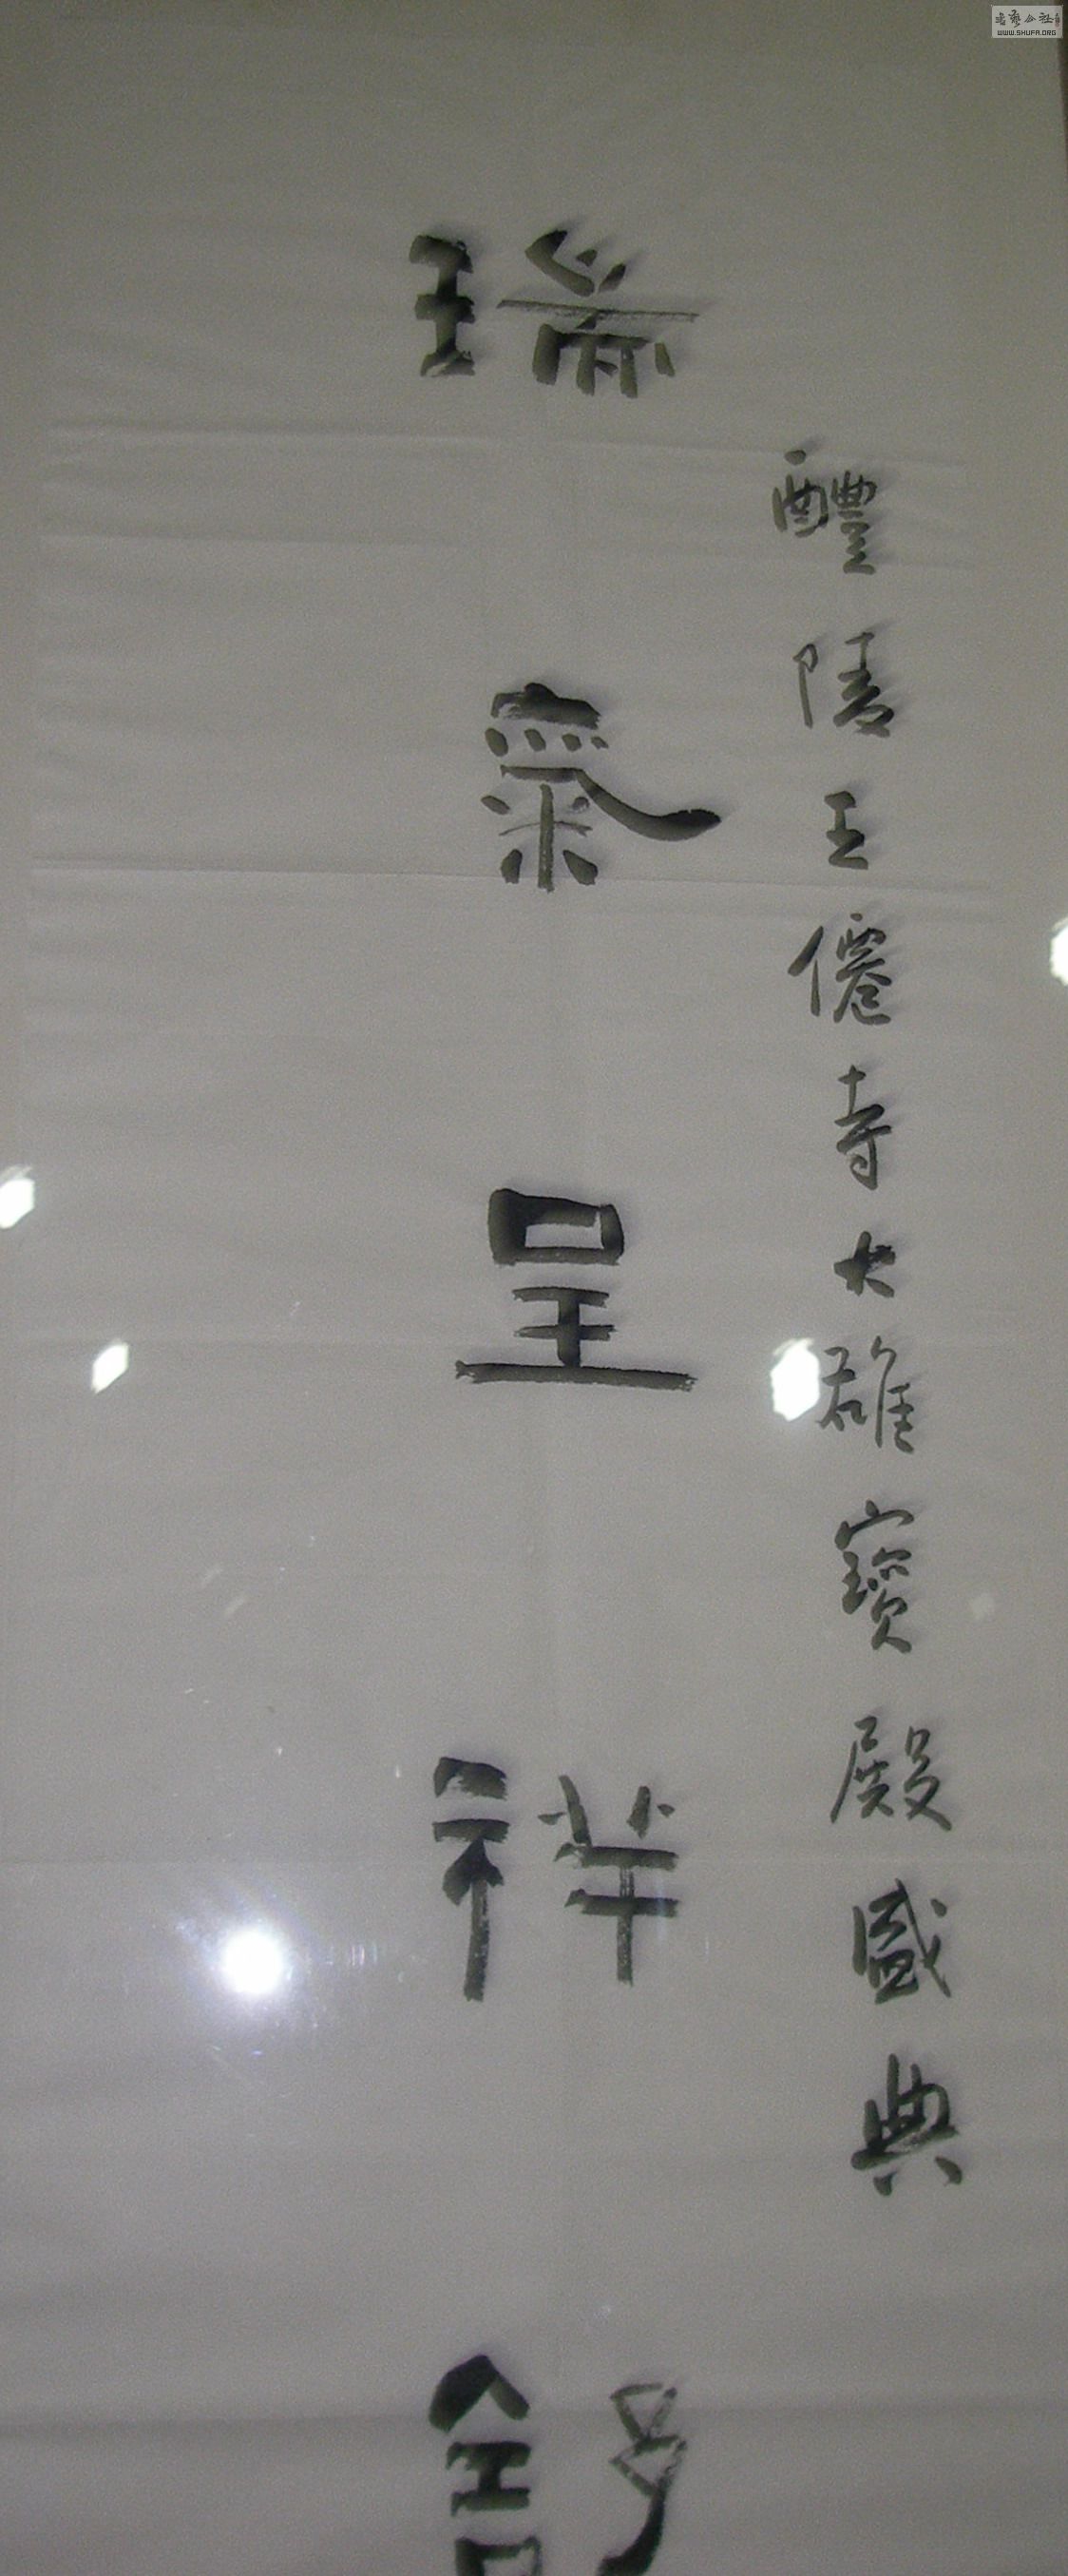 醴陵王僊寺大雄寶殿盛典
瑞氣呈祥舒
書藝公社
WWW.SHUFA.ORG